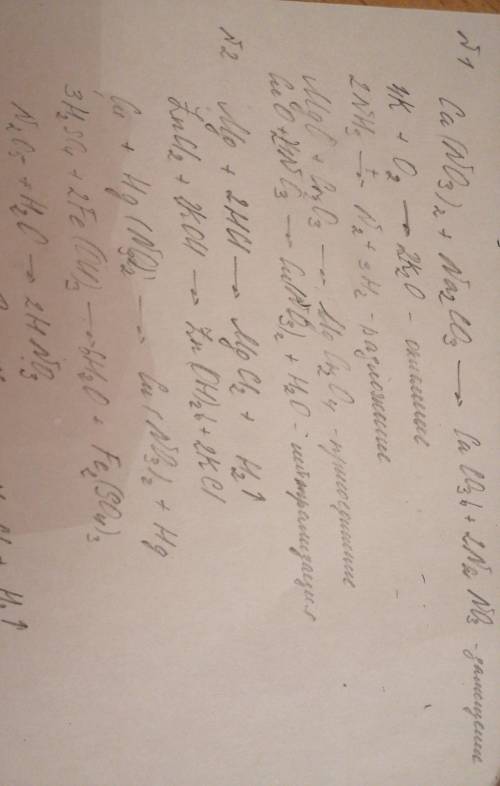 N1 Ca(NO3)2 + Na2CO3 → CaCO3↓ + 2NaNO3 - замещение
4K + O2 → 2K2O - слияние
2NH3 →t N2 + 3H2 - разложение
MgO + Cr2O3 → MgCr2O4 - присоединение
CuO + 2HNO3 → Cu(NO3)2 + H2O - нейтрализация
N2 Mg + 2HCl → MgCl2 + H2↑
ZnCl2 + 2KOH → Zn(OH)2↓ + 2KCl
Cu + Hg(NO3)2 → Cu(NO3)2 + Hg
3H2SO4 + 2Fe(OH)3 → 6H2O + Fe2(SO4)3
N2O5 + H2O → 2HNO3
+ H2↑